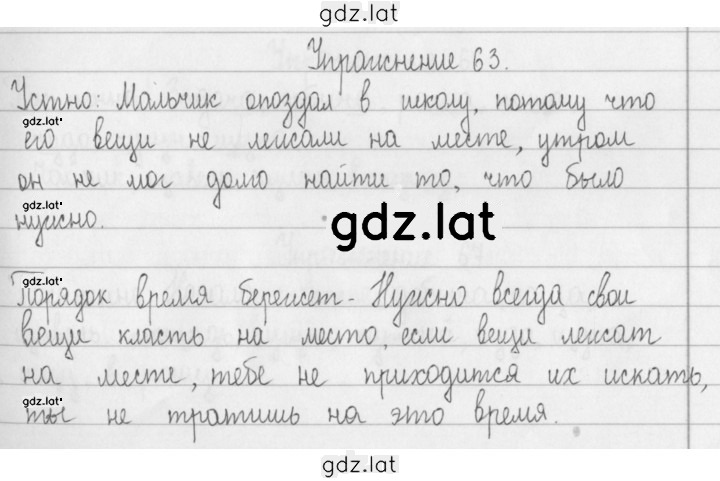 gdz.lat
Упражнение 63.
Устно: Мальчик опоздал в школу, потому что
gdz.lat
его вещи не лежали на месте, утром
он не мог долго найти то, что было
gdz.lat
нужно.
gdz.lat
gdz.lat
Порядок время бережет - Нужно всегда свои
gdz.lat
вещи класть на место, если вещи лежат
на месте, тебе не приходится их искать,
gdz.lat
ты не тратишь на это время.
gdz.lat